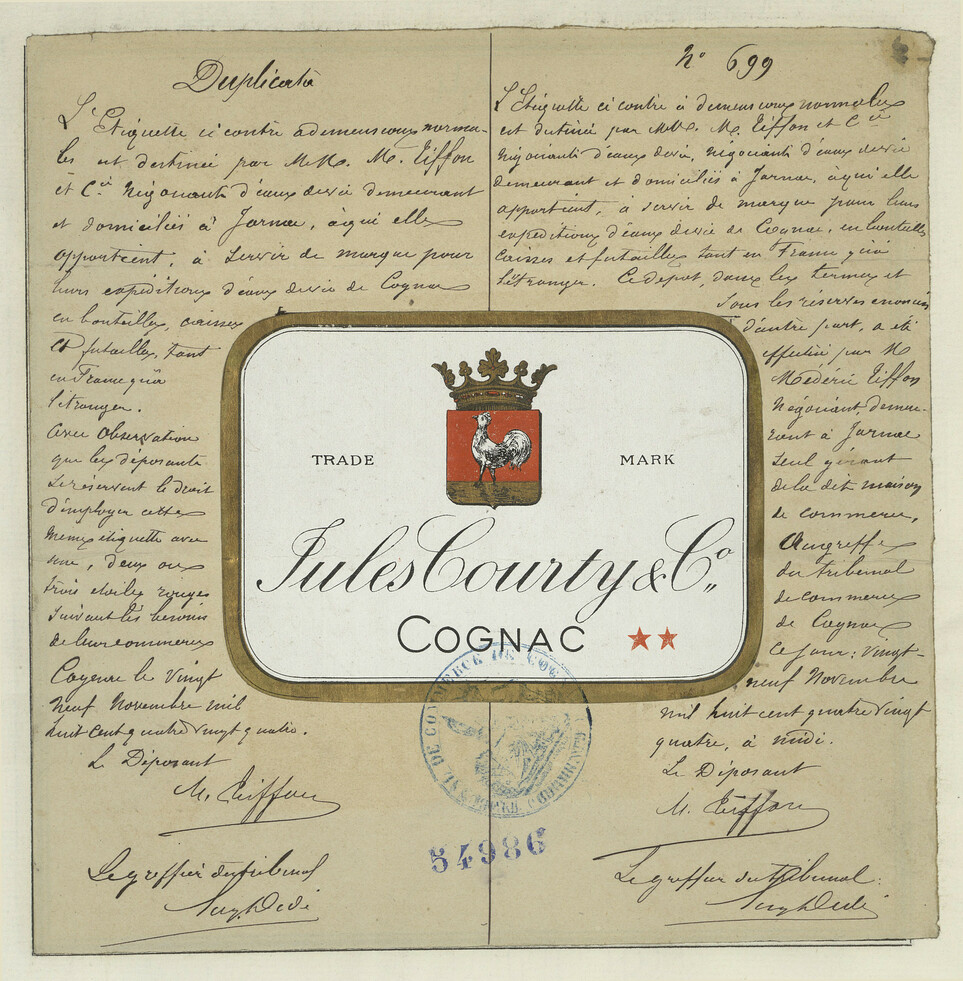 Duplicata
L'Etiquette ci contre a dimensions norma-
les est destinée par MM. M. Tiffon
et Cie Négociants d'eaux de vie demeurant
et domiciliés à Jarnac, à qui elle
appartient, à servir de marque pour
leurs expéditions d'eaux de vie de Cognac
en bouteilles, caisses
et futailles, tant
en France qu'à
l'étranger.
Avec Observation
que les déposants
se réservent le droit
d'employer cette
même étiquette avec
une, deux ou
trois etoiles rouges
suivant les besoins
de leur commerce
Cognac le vingt
neuf Novembre mil
huit cent quatre vingt quatre.
Le Déposant
M. Tiffon
Le greffier du tribunal
No 699
L'Etiquette ci contre à dimensions normales
est destinée par MM. M. Tiffon et Cie
Négociants d'eaux de vie, négociants d'eaux de vie
demeurant et domiciliés à Jarnac, à qui elle
appartient, à servir de marque pour leurs
expéditions d'eaux de vie de Cognac, en bouteilles
caisses et futailles tant en France qu'à
l'étranger. Ce dépot, dans les termes et
sous les réserves enoncées
d'autre part, a été
effectué par M
Médéric Tiffon
Négociant, demeu-
rant à Jarnac
seul gérant
de la dit maison
de commerce,
Au greffe
du tribunal
de commerce
de Cognac
Ce jour: vingt-
neuf Novembre
mil huit cent quatre vingt
quatre, à midi.
Le Déposant
M. Tiffon
Le greffier du tribunal:
TRADE MARK
Jules Courty & Co.
COGNAC
DE COMMERCE DE COG
54986